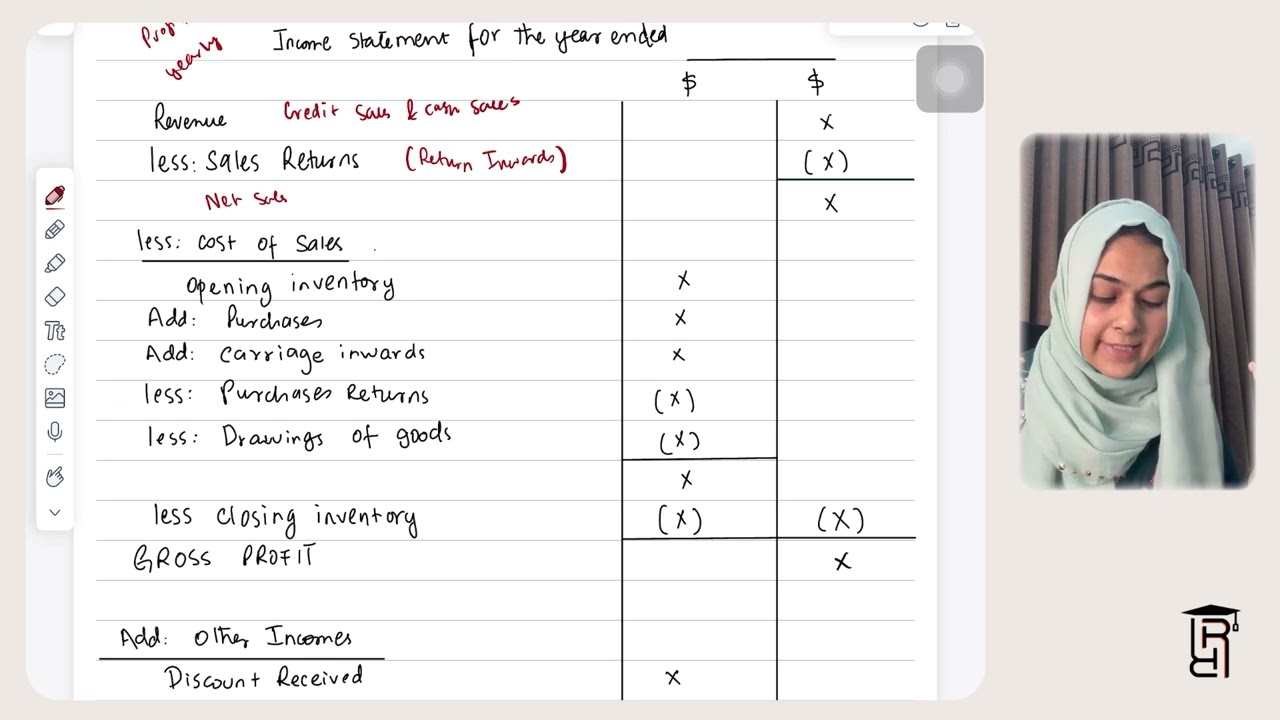 yearly
Income statement for the year ended
$ $
Revenue Credit sales & cash sales x
less: Sales Returns (Return Inwards) (x)
Net Sales x
less: cost of sales
opening inventory x
Add: Purchases x
Add: carriage inwards x
less: Purchases Returns (x)
less: Drawings of goods (x)
x
less closing inventory (x) (x)
GROSS PROFIT x
Add: Other Incomes
Discount Received x
Tt